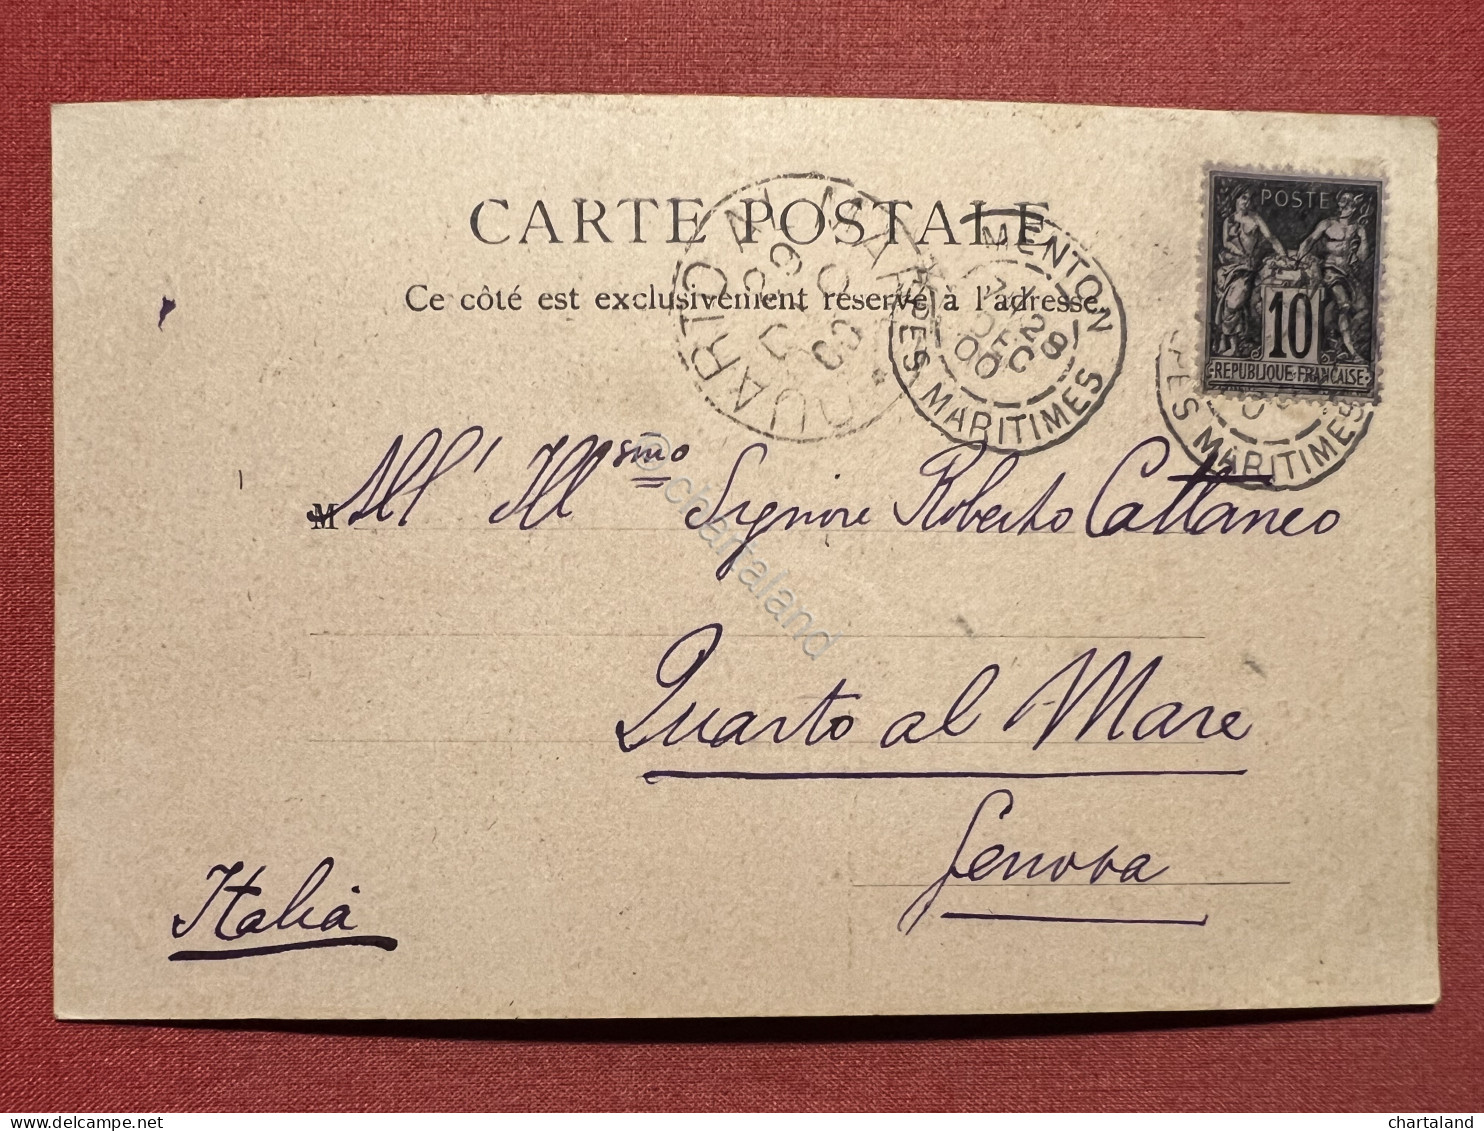 CARTE POSTALE
Ce côté est exclusivement réservé à l'adresse.
POSTE
10
REPUBLIQUE FRANÇAISE
MENTON
28
DEC
00
ALPES MARITIMES
QUARTO AL MARE
PES MARITIMES
M
All' Ill smo Signore Roberto Cattaneo
Quarto al Mare
Genova
Italia
© chartaland
delcampe.net
chartaland